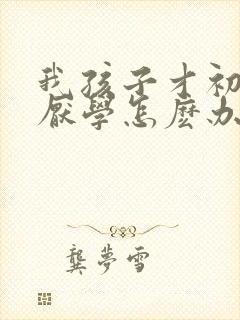 我孩子才初
厌學怎麼办
龔夢雪